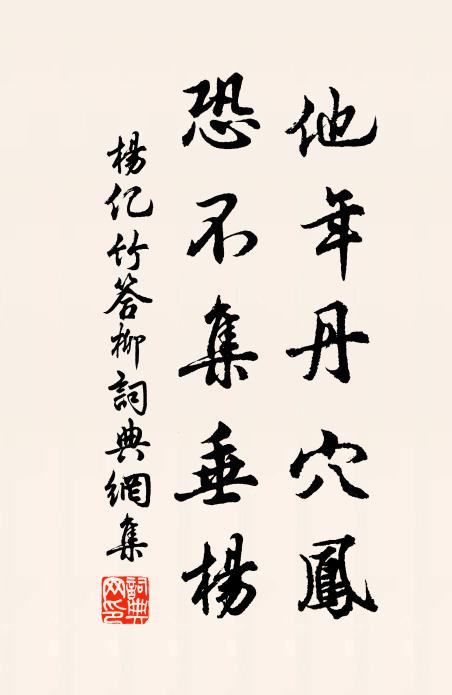 他年丹穴鳳
恐不集垂楊
楊亿竹答柳詞典網集
詞典網印